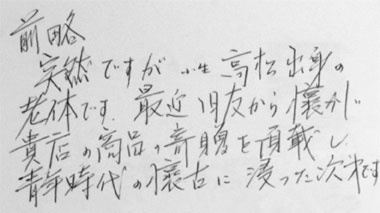 前略
突然ですが 小生 高松出身の
老体です. 最近 旧友から懐かし
貴店の商品の寄贈を頂戴し
青年時代の懐古に浸った次第です